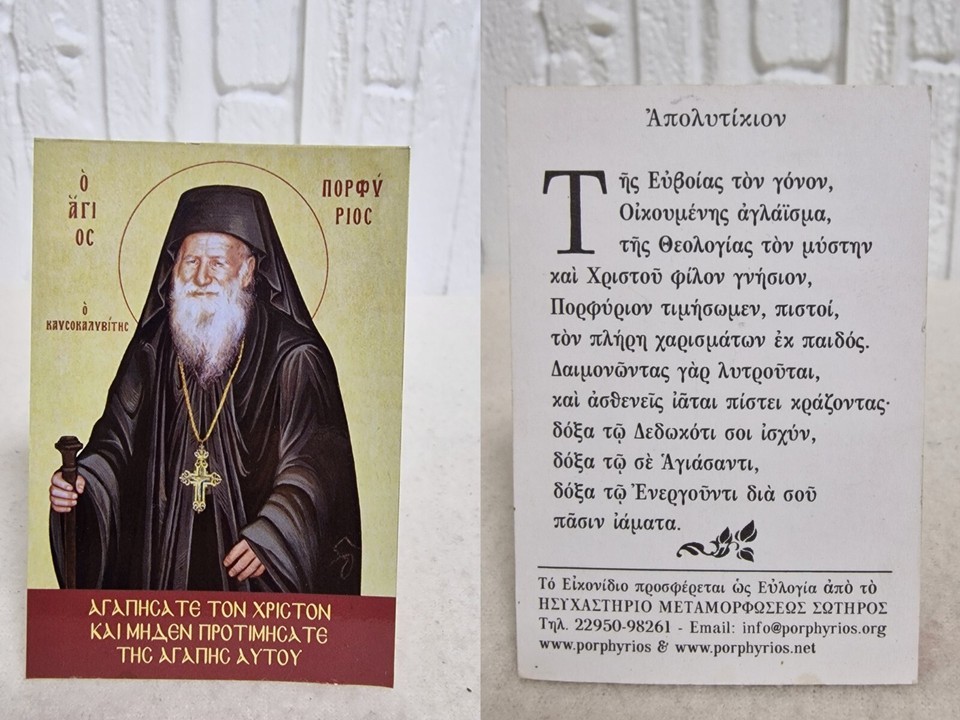 Ὁ
ἍΓΙ
ΟC
ΠΟΡΦΎ
ΡΙΟC
ὁ
ΚΑΥCΟΚΑΛΥΒΊΤΗC
ΑΓΑΠΗCΑΤΕ ΤΟΝ ΧΡΙCΤΟΝ
ΚΑΙ ΜΗΔΕΝ ΠΡΟΤΙΜΗCΑΤΕ
ΤΗC ΑΓΑΠΗC ΑΥΤΟΥ
Ἀπολυτίκιον
Τῆς Εὐβοίας τὸν γόνον,
Οἰκουμένης ἀγλάϊσμα,
τῆς Θεολογίας τὸν μύστην
καὶ Χριστοῦ φίλον γνήσιον,
Πορφύριον τιμήσωμεν, πιστοί,
τὸν πλήρη χαρισμάτων ἐκ παιδός.
Δαιμονῶντας γὰρ λυτροῦται,
καὶ ἀσθενεῖς ἰᾶται πίστει κράζοντας·
δόξα τῷ Δεδωκότι σοι ἰσχύν,
δόξα τῷ σὲ Ἁγιάσαντι,
δόξα τῷ Ἐνεργοῦντι διὰ σοῦ
πᾶσιν ἰάματα.
Τό Εἰκονίδιο προσφέρεται ὡς Εὐλογία ἀπὸ τὸ
ΗΣΥΧΑΣΤΗΡΙΟ ΜΕΤΑΜΟΡΦΩΣΕΩΣ ΣΩΤΗΡΟΣ
Τηλ. 22950-98261 - Email: info@porphyrios.org
www.porphyrios & www.porphyrios.net